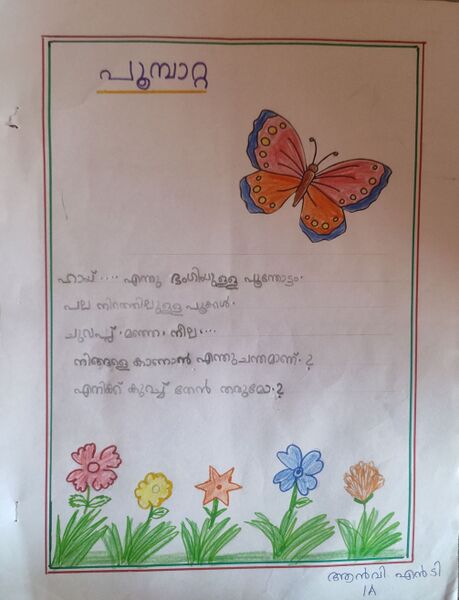 പൂമ്പാറ്റ
ഹായ്.... എന്തു ഭംഗിയുള്ള പൂന്തോട്ടം.
പല നിറത്തിലുള്ള പൂക്കൾ.
ചുവപ്പ്. മഞ്ഞ. നീല....
നിങ്ങളെ കാണാൻ എന്തുചന്തമാണ്.?
എനിക്ക് കുറച്ച് തേൻ തരുമോ.?
ആൻവി എൻ ടി
1A